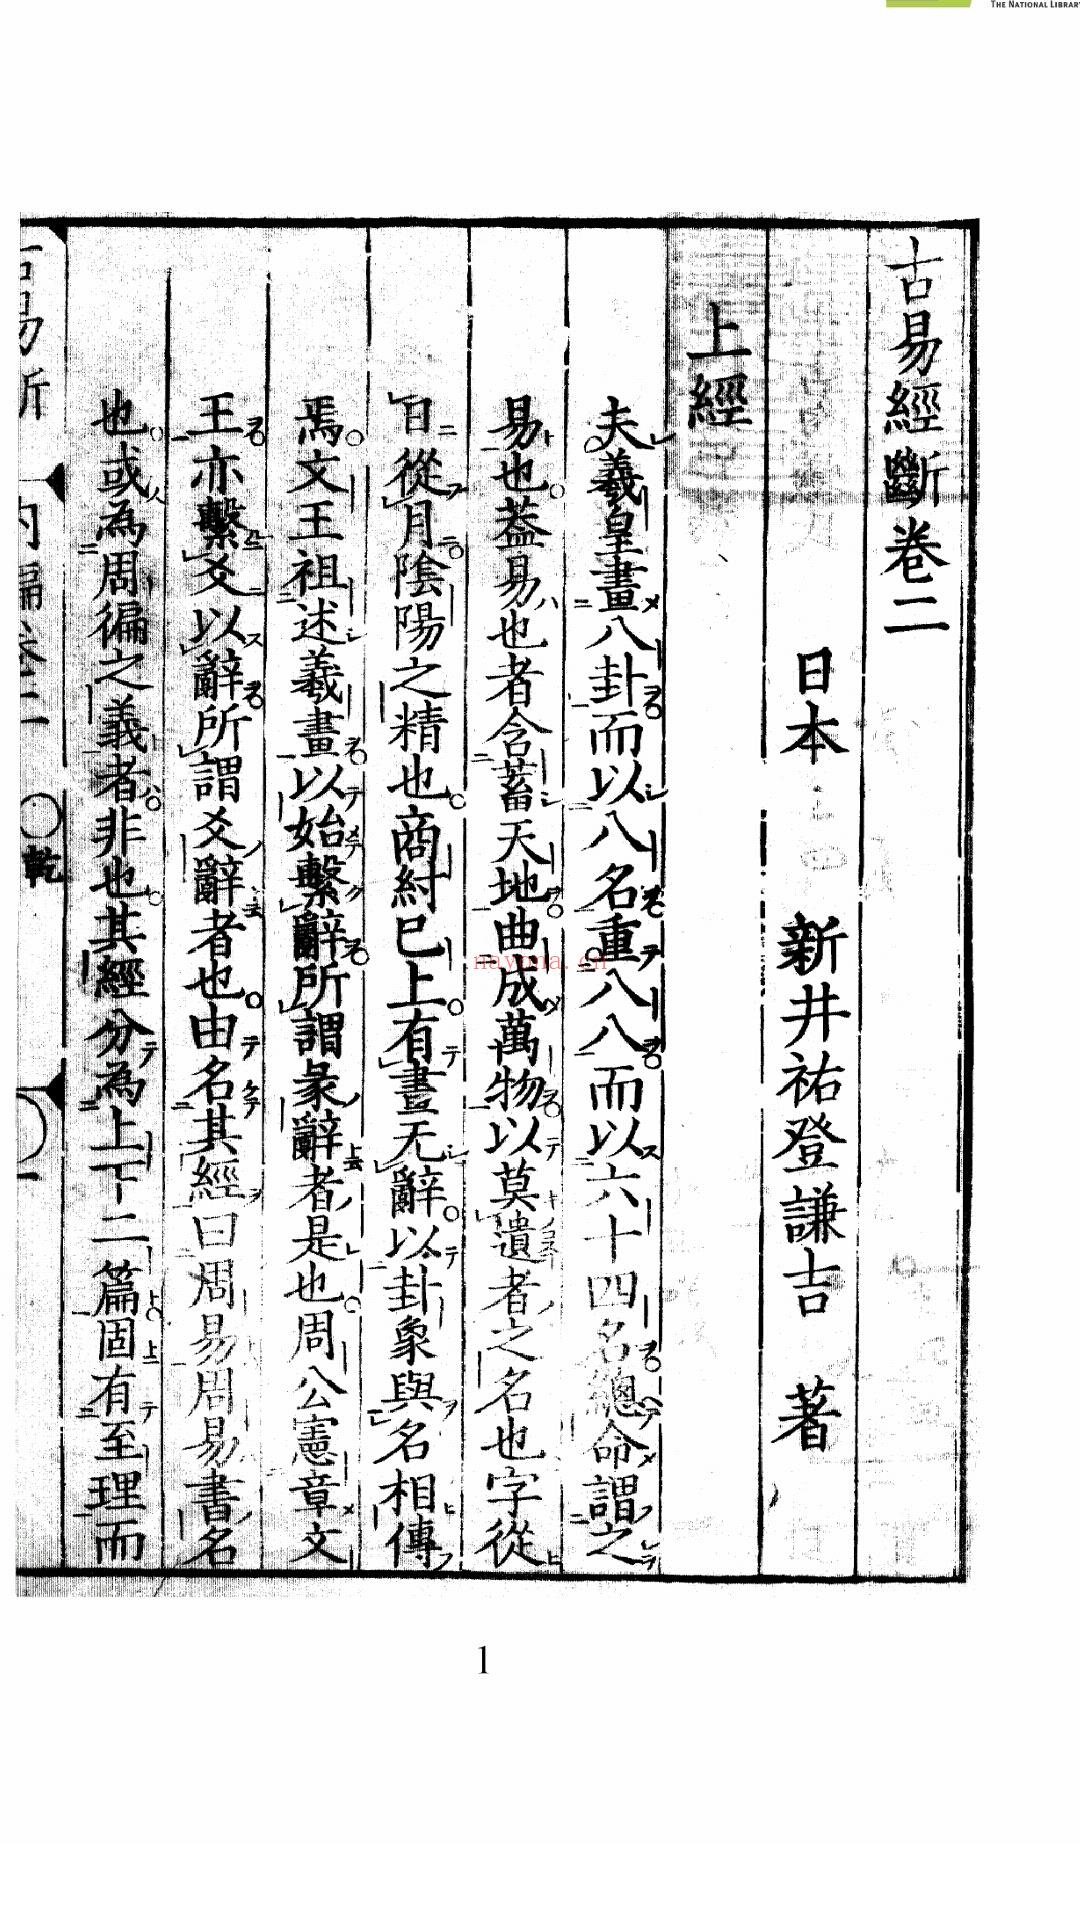 THE NATIONAL LIBRARY
古易經斷卷二
日本 新井祐登謙吉 著
上經
夫羲皇畫八卦而以八名重八八而以六十四名總命謂之
易也葢易也者含蓄天地曲成萬物以莫遺者之名也字從
日從月陰陽之精也商紂已上有畫无辭以卦象與名相傳
焉文王祖述羲畫以始繫辭所謂彖辭者是也周公憲章文
王亦繫爻以辭所謂爻辭者也由名其經曰周易周易書名
也或為周徧之義者非也其經分為上下二篇固有至理而
古易斷 內編卷二 乾 一
nayona.cn
1